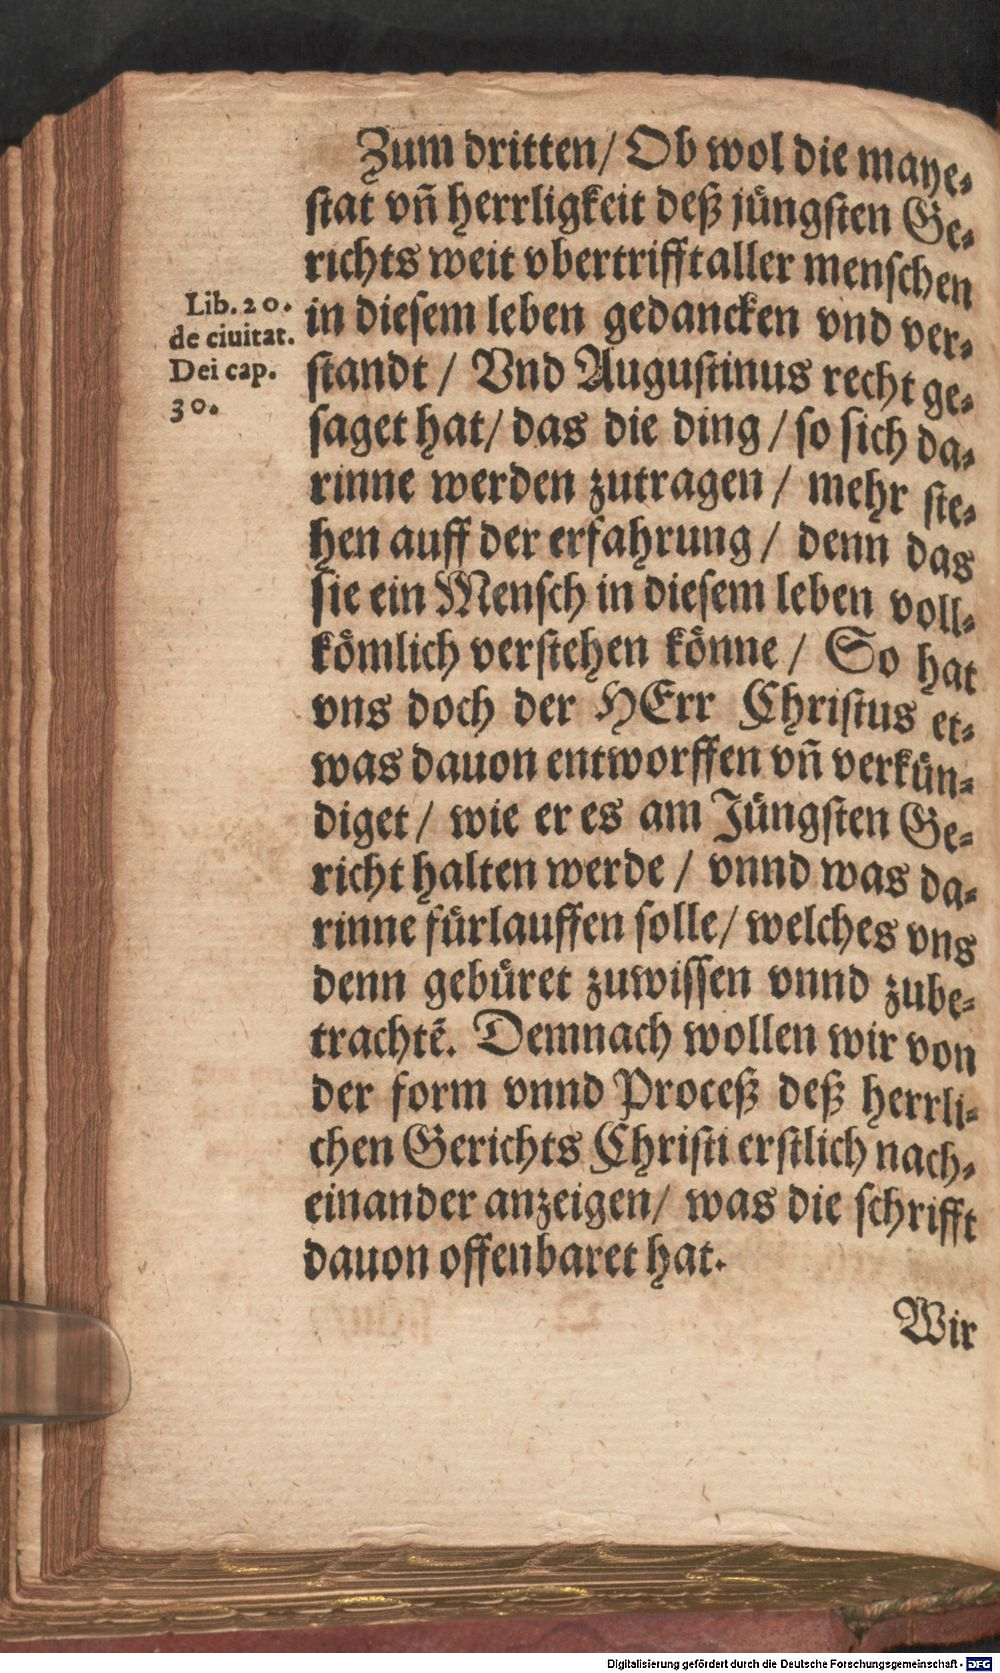 Zum dritten/ Ob wol die maye-
stat vñ herrligkeit deß jüngsten Ge-
richts weit vbertrifft aller menschen
in diesem leben gedancken vnd ver-
standt / Vnd Augustinus recht ge-
saget hat/ das die ding / so sich da-
rinne werden zutragen / mehr ste-
hen auff der erfahrung / denn das
sie ein Mensch in diesem leben voll-
kömlich verstehen könne / So hat
vns doch der HErr Christus et-
was dauon entworffen vñ verkün-
diget / wie er es am Jüngsten Ge-
richt halten werde / vnnd was da-
rinne fürlauffen solle/ welches vns
denn gebüret zuwissen vnnd zube-
trachtẽ. Demnach wollen wir von
der form vnnd Proceß deß herrli-
chen Gerichts Christi erstlich nach-
einander anzeigen/ was die schrifft
dauon offenbaret hat.
Wir
Lib. 20.
de ciuitat.
Dei cap.
30.
Digitalisierung gefördert durch die Deutsche Forschungsgemeinschaft - DFG